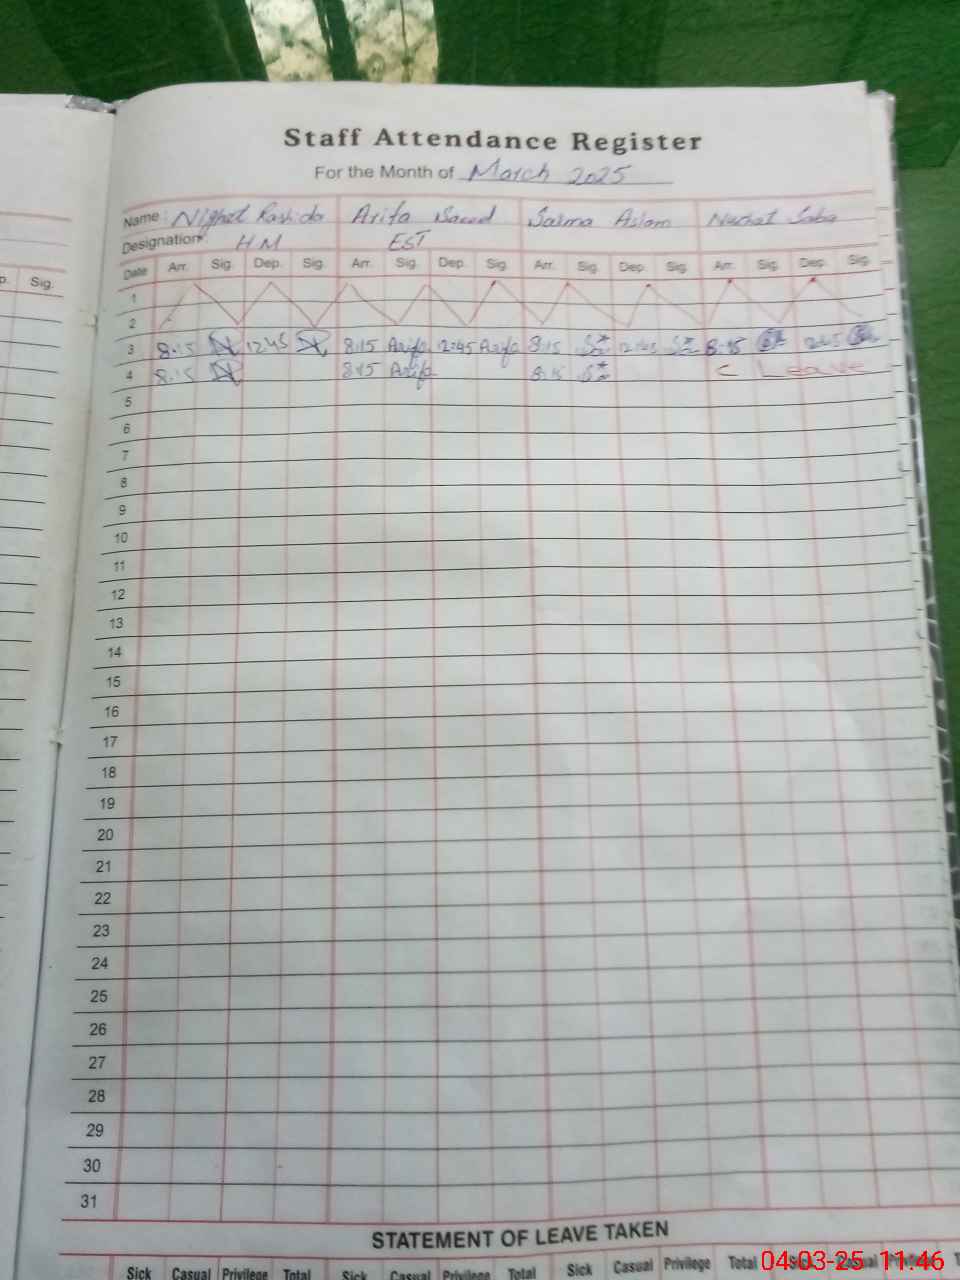 Staff Attendance Register
For the Month of March 2025
Name: Nighat Rashida Arifa Saeed Salma Aslam Nuzhat Saba
Designation: HM EST
Date Arr. Sig. Dep. Sig. Arr. Sig. Dep. Sig. Arr. Sig. Dep. Sig. Arr. Sig. Dep. Sig.
p. Sig.
1
2
3 8:15 1245 8:15 Arifa 12:45 Arifa 8:15 12:45 8:15 12:45
4 8:15 8:15 Arifa 8:15 C Leave
5
6
7
8
9
10
11
12
13
14
15
16
17
18
19
20
21
22
23
24
25
26
27
28
29
30
31
STATEMENT OF LEAVE TAKEN
Sick Casual Privilege Total Sick Casual Privilege Total Sick Casual Privilege Total Sick Casual Privilege T
04-03-25 11:46